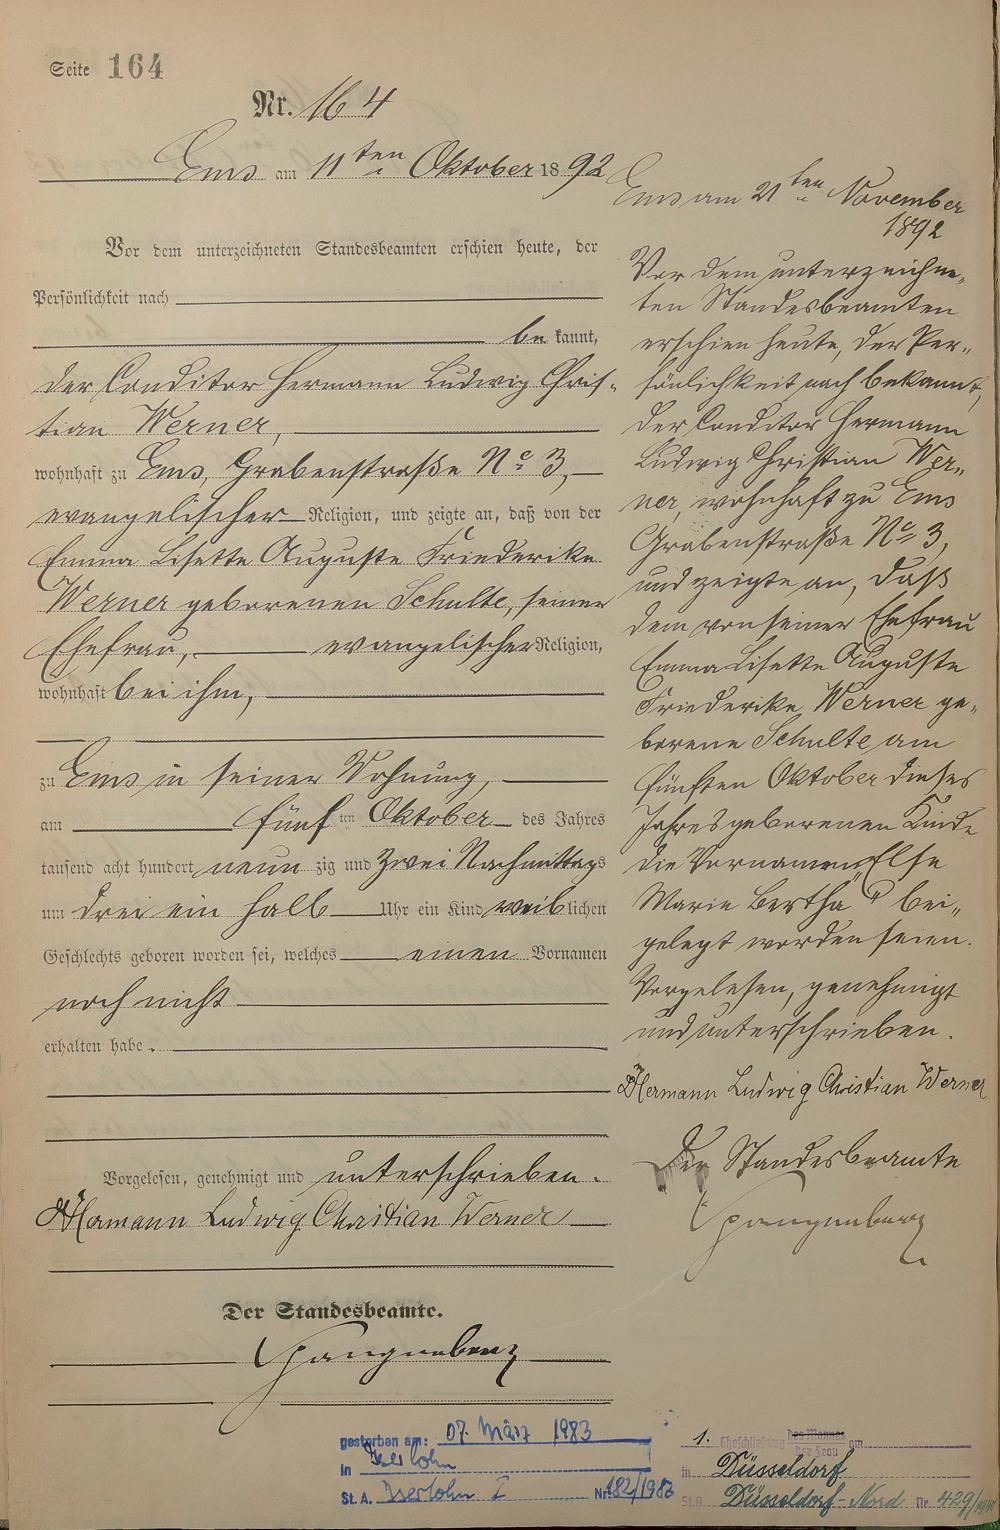 Seite 164
Nr. 164
Ems am 11ten Oktober 1892
Vor dem unterzeichneten Standesbeamten erschien heute, der
Persönlichkeit nach
be kannt,
der Conditor Hermann Ludwig Chris-
tian Werner,
wohnhaft zu Ems, Grabenstraße No 3,
evangelischer Religion, und zeigte an, daß von der
Emma Lisette Auguste Friederike
Werner geborenen Schulte, seiner
Ehefrau, evangelischer Religion,
wohnhaft bei ihm,
zu Ems in seiner Wohnung,
am fünf ten Oktober des Jahres
tausend acht hundert neun zig und zwei Nachmittags
um drei ein halb Uhr ein Kind weib lichen
Geschlechts geboren worden sei, welches einen Vornamen
noch nicht
erhalten habe.
Vorgelesen, genehmigt und unterschrieben.
Hermann Ludwig Christian Werner
Der Standesbeamte.
Spangenberg
Ems am 21ten November
1892
Vor dem unterzeichne-
ten Standesbeamten
erschien heute, der Per-
sönlichkeit nach bekannt,
der Conditor Hermann
Ludwig Christian Wer-
ner, wohnhaft zu Ems
Grabenstraße No 3,
und zeigte an, daß
dem von seiner Ehefrau
Emma Lisette Auguste
Friederike Werner ge-
borene Schulte, am
fünften Oktober dieses
Jahres geborenen Kinde
die Vornamen „Else
Marie Bertha" bei-
gelegt worden seien.
Vorgelesen, genehmigt
und unterschrieben.
Hermann Ludwig Christian Werner
Der Standesbeamte
Spangenberg
gestorben am: 07. März 1983
in Iserlohn
St. A. Iserlohn I Nr. 182/1983
1. Eheschließung des Mannes
der Frau am
in Düsseldorf
St.A. Düsseldorf-Nord Nr 429/